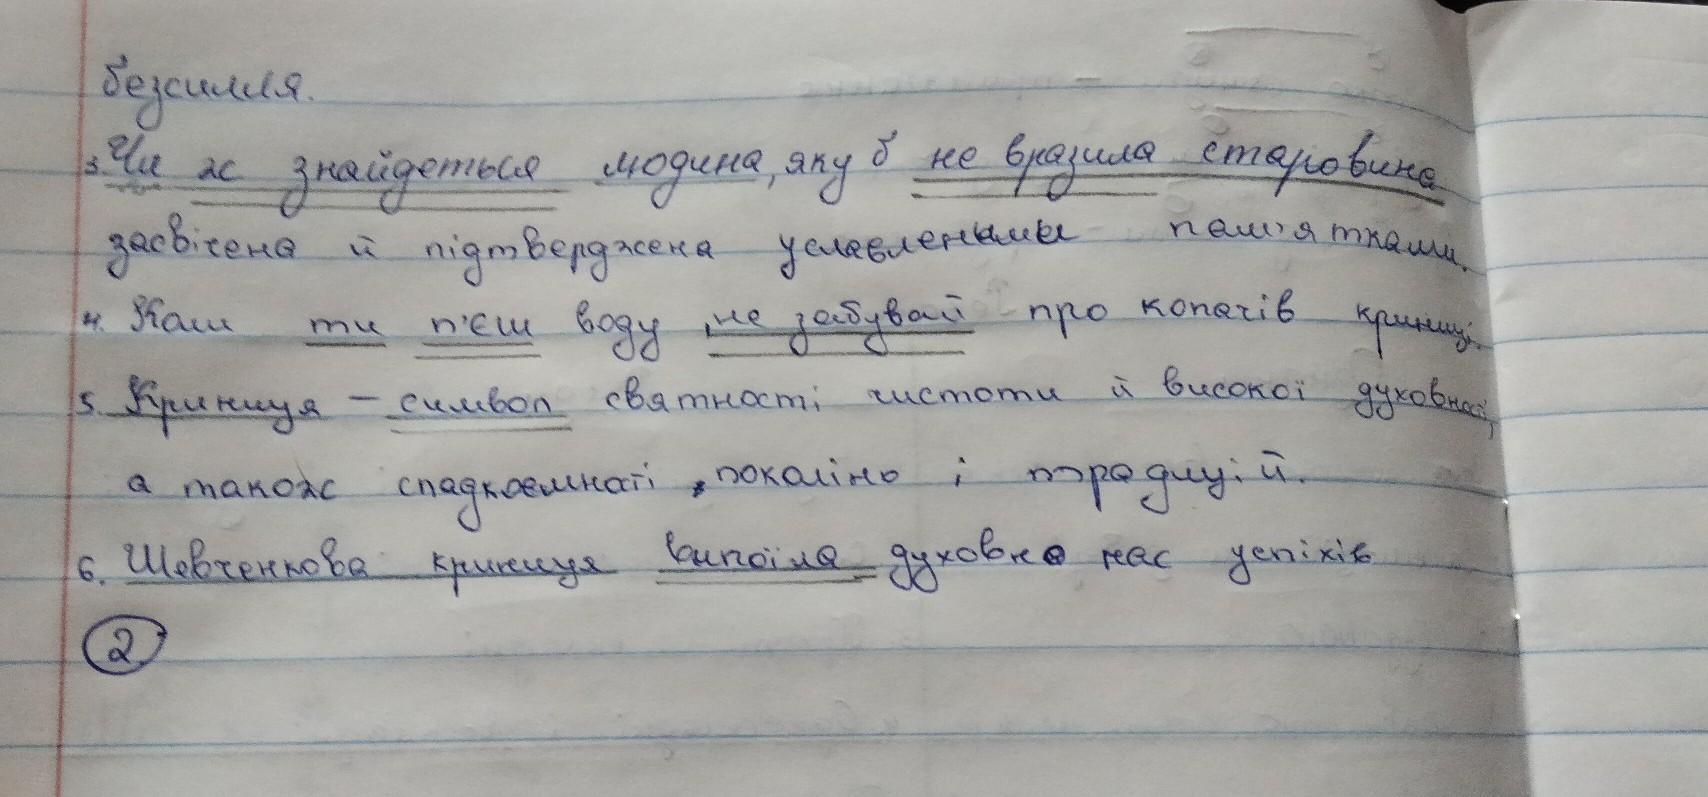 безсилля.
3. Чи ж знайдеться людина, яку б не вразила старовина
засвічена й підтверджена уславленими пам'ятками.
4. Коли ти п'єш воду, не забувай про копачів криниці.
5. Криниця – символ святності чистоти й високої духовності,
а також спадкоємності поколінь і традицій.
6. Шевченкова криниця випоїла духовно нас успіхів
2